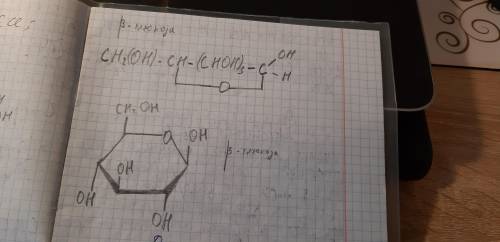 β-глюкоза
CH₂(OH)-CH-(CHOH)₃-C OH
H
O
CH₂OH
O OH
β-глюкоза
OH
OH
OH